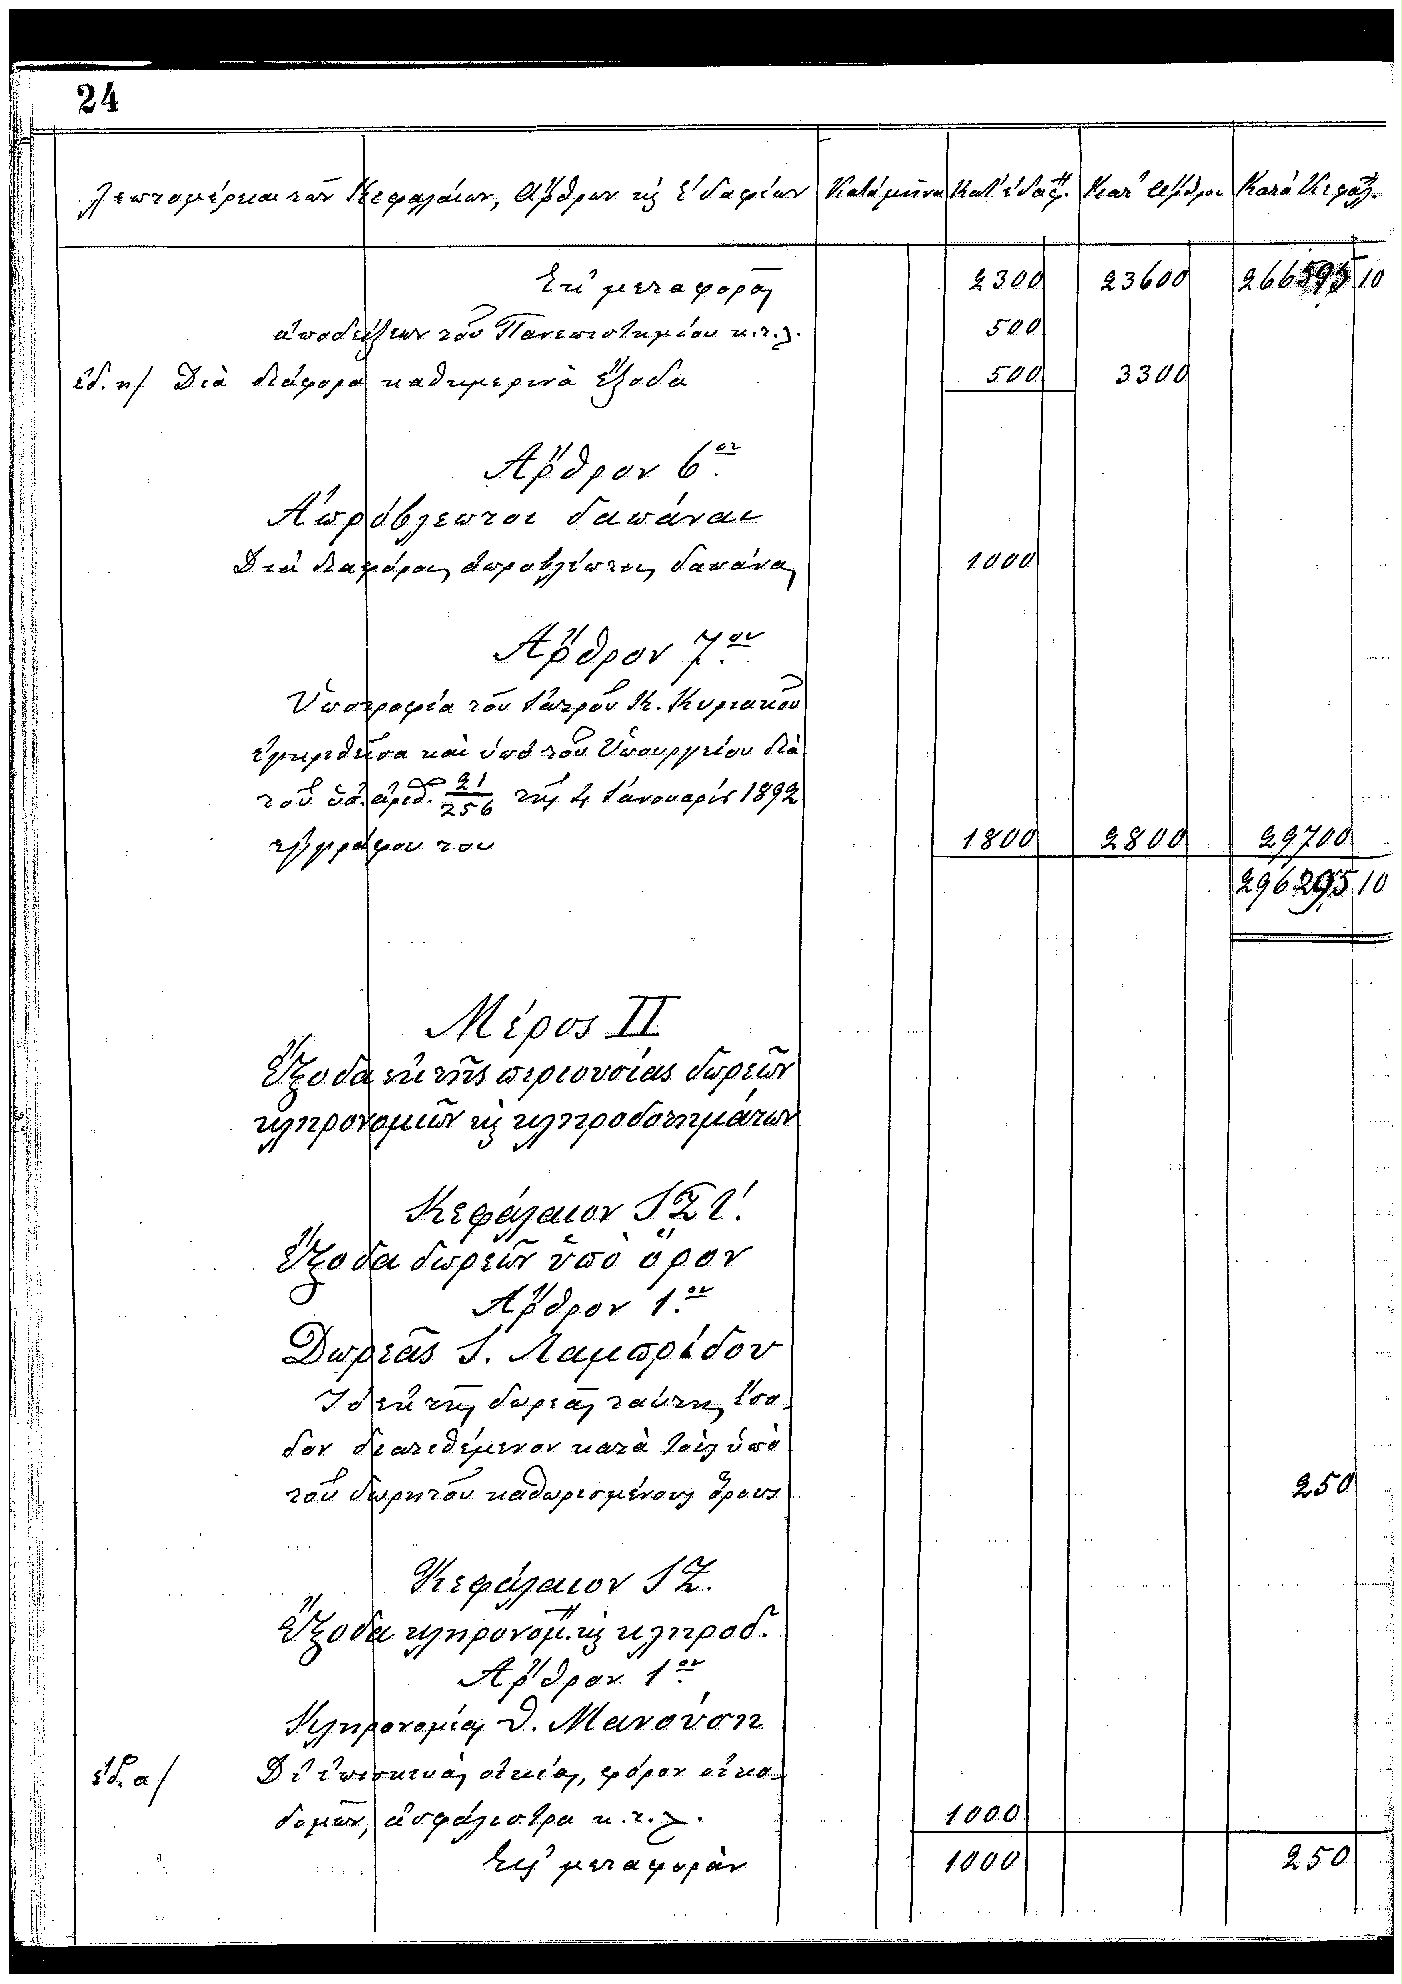 24
Λεπτομέρειαι τῶν Κεφαλαίων, Ἄρθρων κ̀ Ἐδαφίων Κατὰ μῆνα Κατ' ἐδάφ. Κατ' ἄρθρον Κατὰ Κεφάλ.
Ἐκ μεταφορᾶς 2300 23600 266595 10
ἀποδείξεων τοῦ Πανεπιστημίου κ.τ.λ. 500
ἐδ. η/ Διὰ διάφορα καθημερινὰ ἔξοδα 500 3300
Ἄρθρον 6ον
Ἀπρόβλεπτοι δαπάναι
Διὰ διαφόρους ἀπροβλέπτους δαπάνας 1000
Ἄρθρον 7ον
Ὑποτροφία τοῦ ἰατροῦ Κ. Κυριακοῦ
ἐγκριθεῖσα καὶ ὑπὸ τοῦ Ὑπουργείου διὰ
τοῦ ὑπ' ἀριθ. 21/256 τῆς 4 Ἰανουαρίου 1892
ἐγγράφου του 1800 2800 29700
296295 10
Μέρος ΙΙ
Ἔξοδα ἐκ τῆς περιουσίας δωρεῶν
κληρονομιῶν κ̀ κληροδοτημάτων
Κεφάλαιον ΙΣΤ'.
Ἔξοδα δωρεῶν ὑπὸ ὅρον
Ἄρθρον 1ον
Δωρεᾶς Ι. Λαμπρίδου
Τὸ ἐκ τῆς δωρεᾶς ταύτης ἔσο-
δον διατιθέμενον κατὰ τοὺς ὑπὸ
τοῦ δωρητοῦ καθωρισμένους ὅρους 250
Κεφάλαιον ΙΖ.
Ἔξοδα κληρονομ. κ̀ κληροδ.
Ἄρθρον 1ον
Κληρονομίας Θ. Μανούση
ἐδ. α/ Δι' ἐπισκευὰς οἰκίας, φόρον οἰκο-
δομῶν, ἀσφάλιστρα κ.τ.λ. 1000
Εἰς μεταφορὰν 1000 250